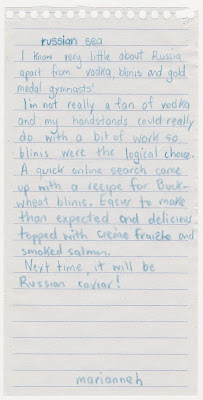 russian sea
I know very little about Russia
apart from vodka, blinis and gold
medal gymnasts!
I'm not really a fan of vodka
and my handstands could really
do with a bit of work so
blinis were the logical choice.
A quick online search came
up with a recipe for Buck-
wheat blinis. Easier to make
than expected and delicious
topped with crème fraîche and
smoked salmon.
Next time, it will be
Russian caviar!
marianneh